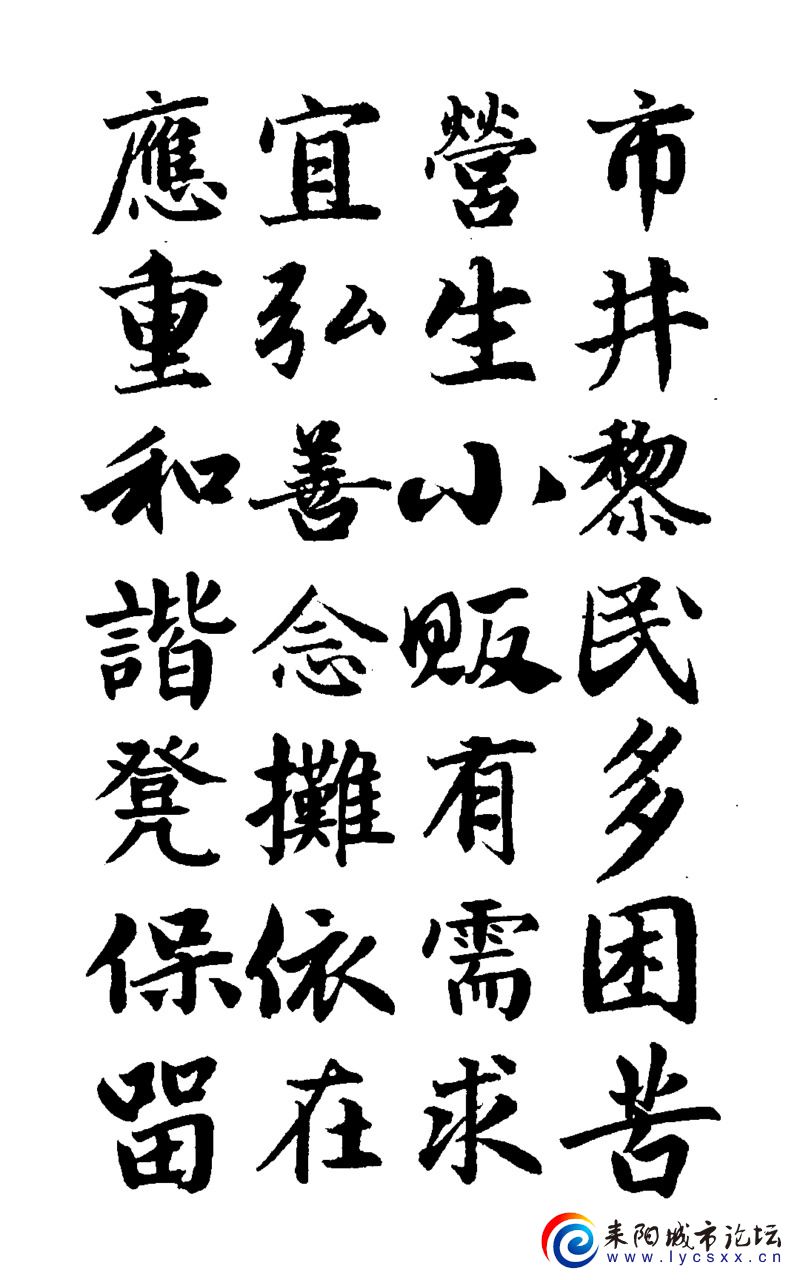 市井黎民多困苦
營生小販有需求
宜弘善念攤依在
應重和諧凳保留
耒阳城市论坛
www.lycsxx.cn